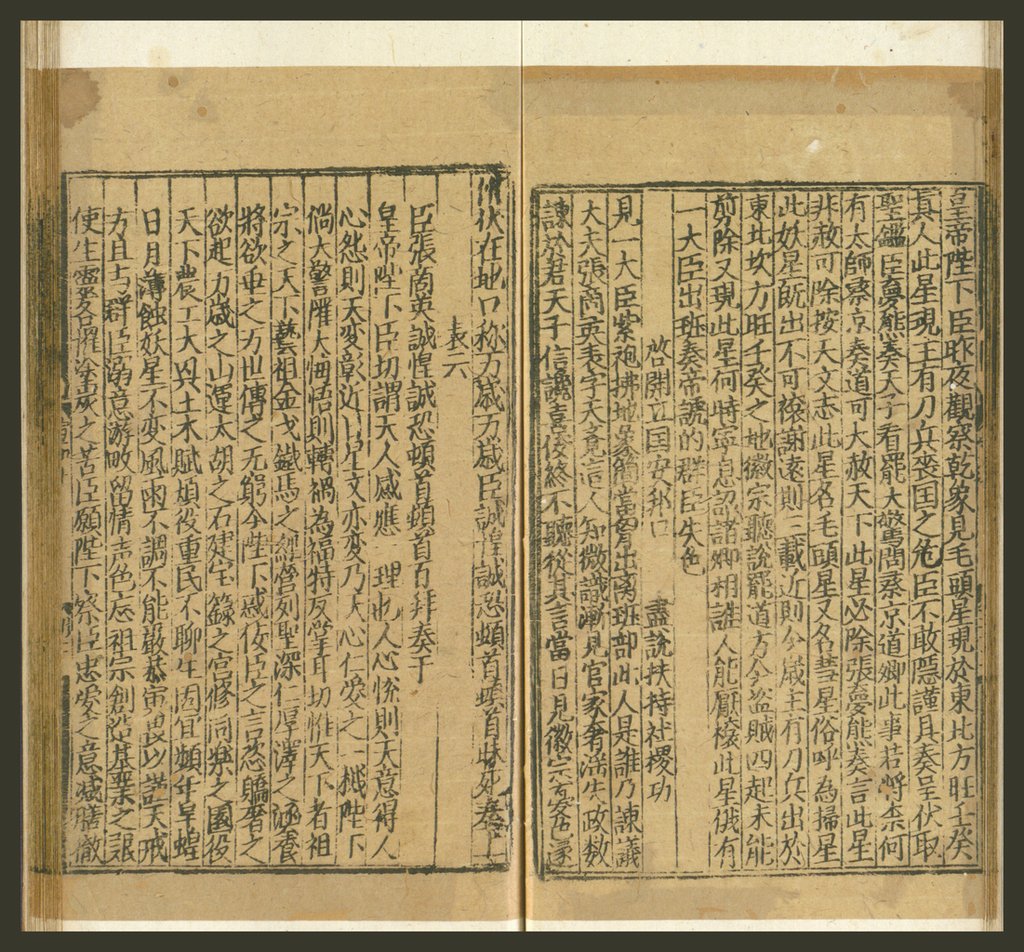 皇帝陛下臣昨夜觀察乾象見毛頭星現於東北方旺壬癸
真人此星現主有刀兵丧囯之危臣不敢隱謹具奏呈伏取
聖鑑臣夣熊奏天子看罷大驚問蔡京道卿此事若將柰何
有太師蔡京奏道可大赦天下此星必除張夣熊奏言此星
非赦可除按天文志此星名毛頭星又名彗星俗呼為掃星
此妖星既出不可禳謝遠則三載近則今歲主有刀兵出於
東北坎方旺壬癸之地徽宗聽說罷道方今盗賊四起未能
剪除又現此星何時寧息詔諸卿相誰人能厭禳此星俄有
一大臣出班奏帝諕的群臣失色
啓開立囯安邦口　盡說扶持社稷功
見一大臣紫袍拂地象簡當胷出离班部此人是誰乃諫議
大夫張商英表字天覚言人知微識漸見官家奢淫失政数
諫於君天子信讒喜佞終不聽從其言當日見徽宗哀乞遂
俯伏在地口称万歲万歲臣誠惶誠恐頓首頓首昧死奏上
表云
臣張啇英誠惶誠恐頓首頓首百拜奏于
皇帝陛下臣切謂天人感應一理也人心悦則天意得人
心怨則天変彰近日星文亦変乃天心仁愛之一機陛下
倘大警懼大悔悟則轉禍為福特反掌耳切惟天下者祖
宗之天下藝祖金戈鐡馬之經營列聖深仁厚澤之涵養
將欲垂之万世傳之无窮今陛下惑佞臣之言恣驕奢之
欲起万歲之山運太湖之石建宝籙之宮修同樂之園役
天下農工大興土木賦煩役重民不聊生因冝頻年旱蝗
日月薄蝕妖星示变風雨不調不能嚴恭寅畏以荅天戒
方且与群臣溺意游畋留情声色忘祖宗創造基業之艱
使生靈各罹塗炭之苦臣願陛下察臣忠愛之意减膳徹